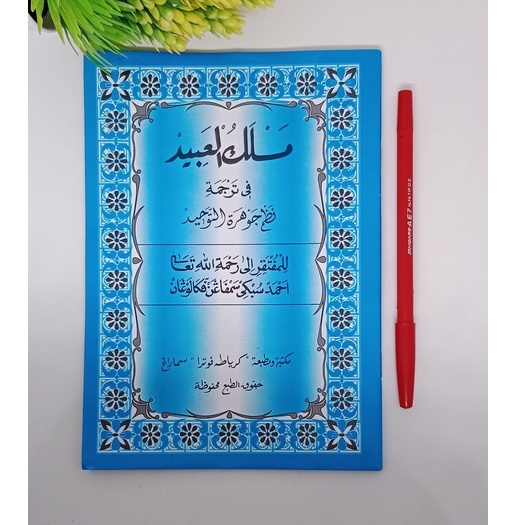 مَسْلَكُ الْعَبِيد
فِي تَرْجَمَةِ
نَظْمِ جَوْهَرَةِ التَّوْحِيد
لِلْمُفْتَقِرِ إِلَى رَحْمَةِ اللهِ تَعَالَى
احمد سبكي مسفاعن فكالوغان
مكتبة ومطبعة "كرياطه فوترا" سماراغ
حقوق الطبع محفوظة
STANDARD AE7 ALFA TIP 0.5